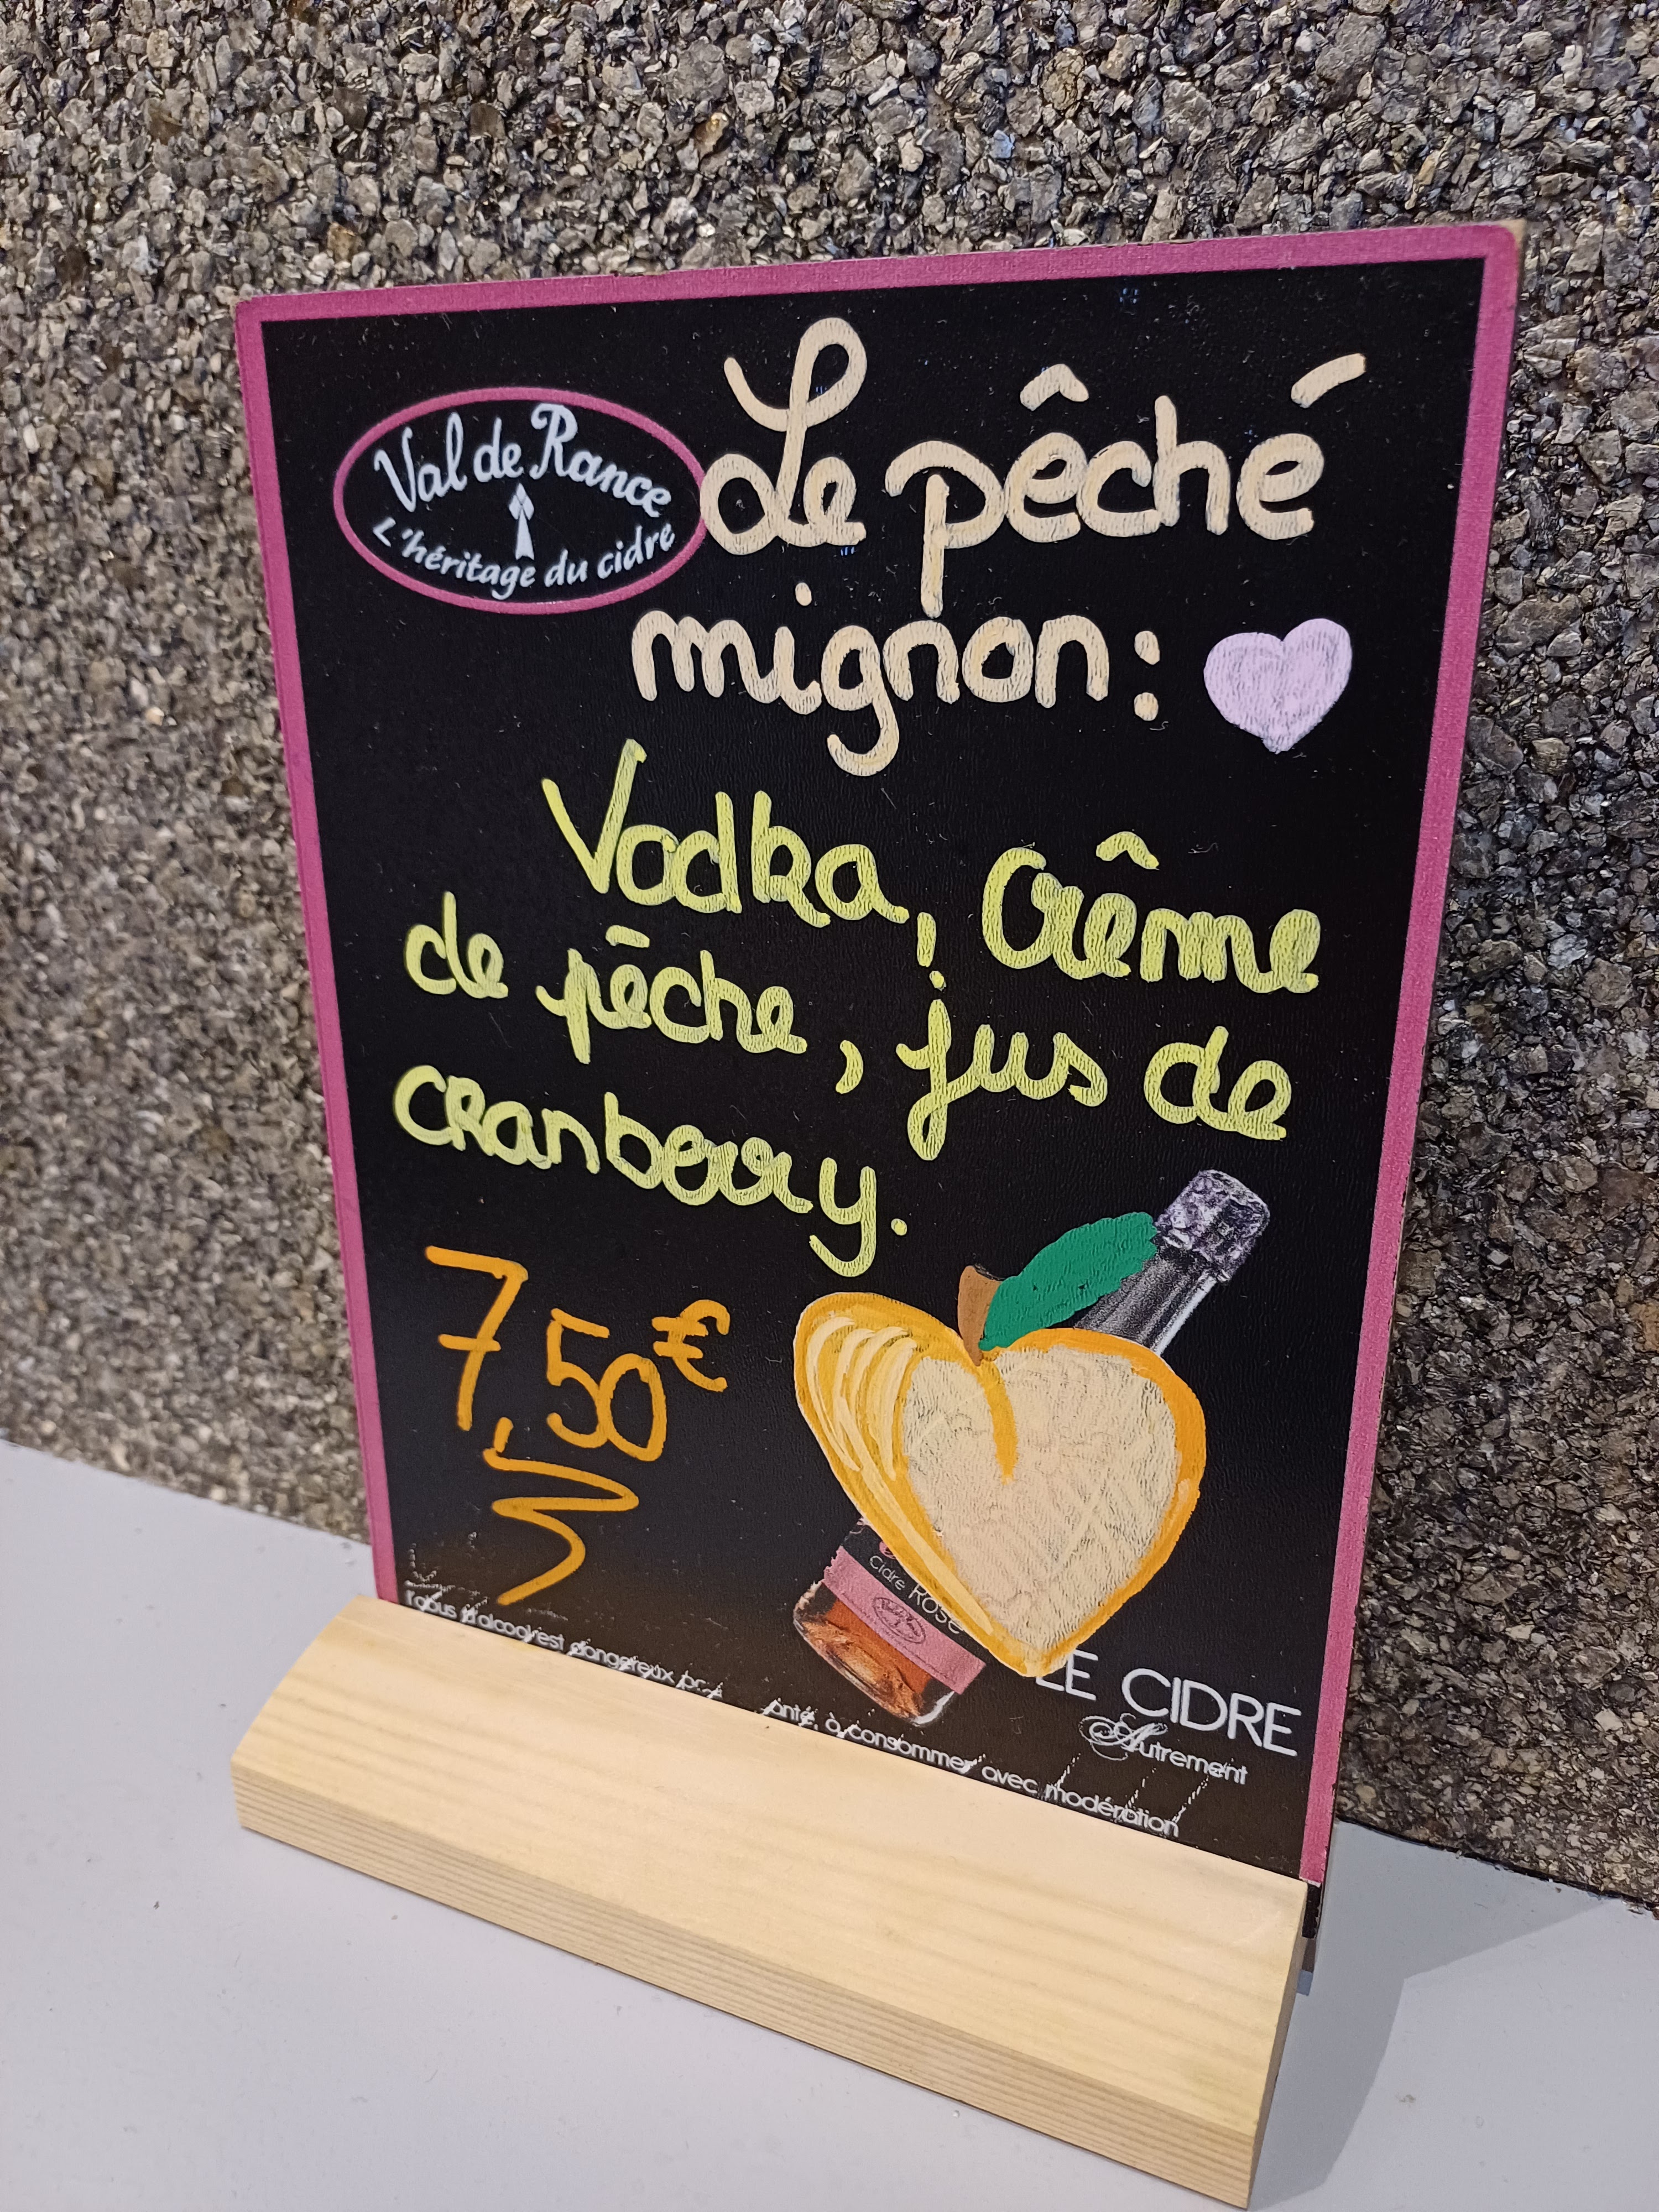 Val de Rance
L'héritage du cidre
Le pêché
mignon:
Vodka, Crême
de pêche, jus de
cranberry.
7,50€
cidre ROSÉ
LE CIDRE
Autrement
l'abus d'alcool est dangereux pour santé, à consommer avec modération